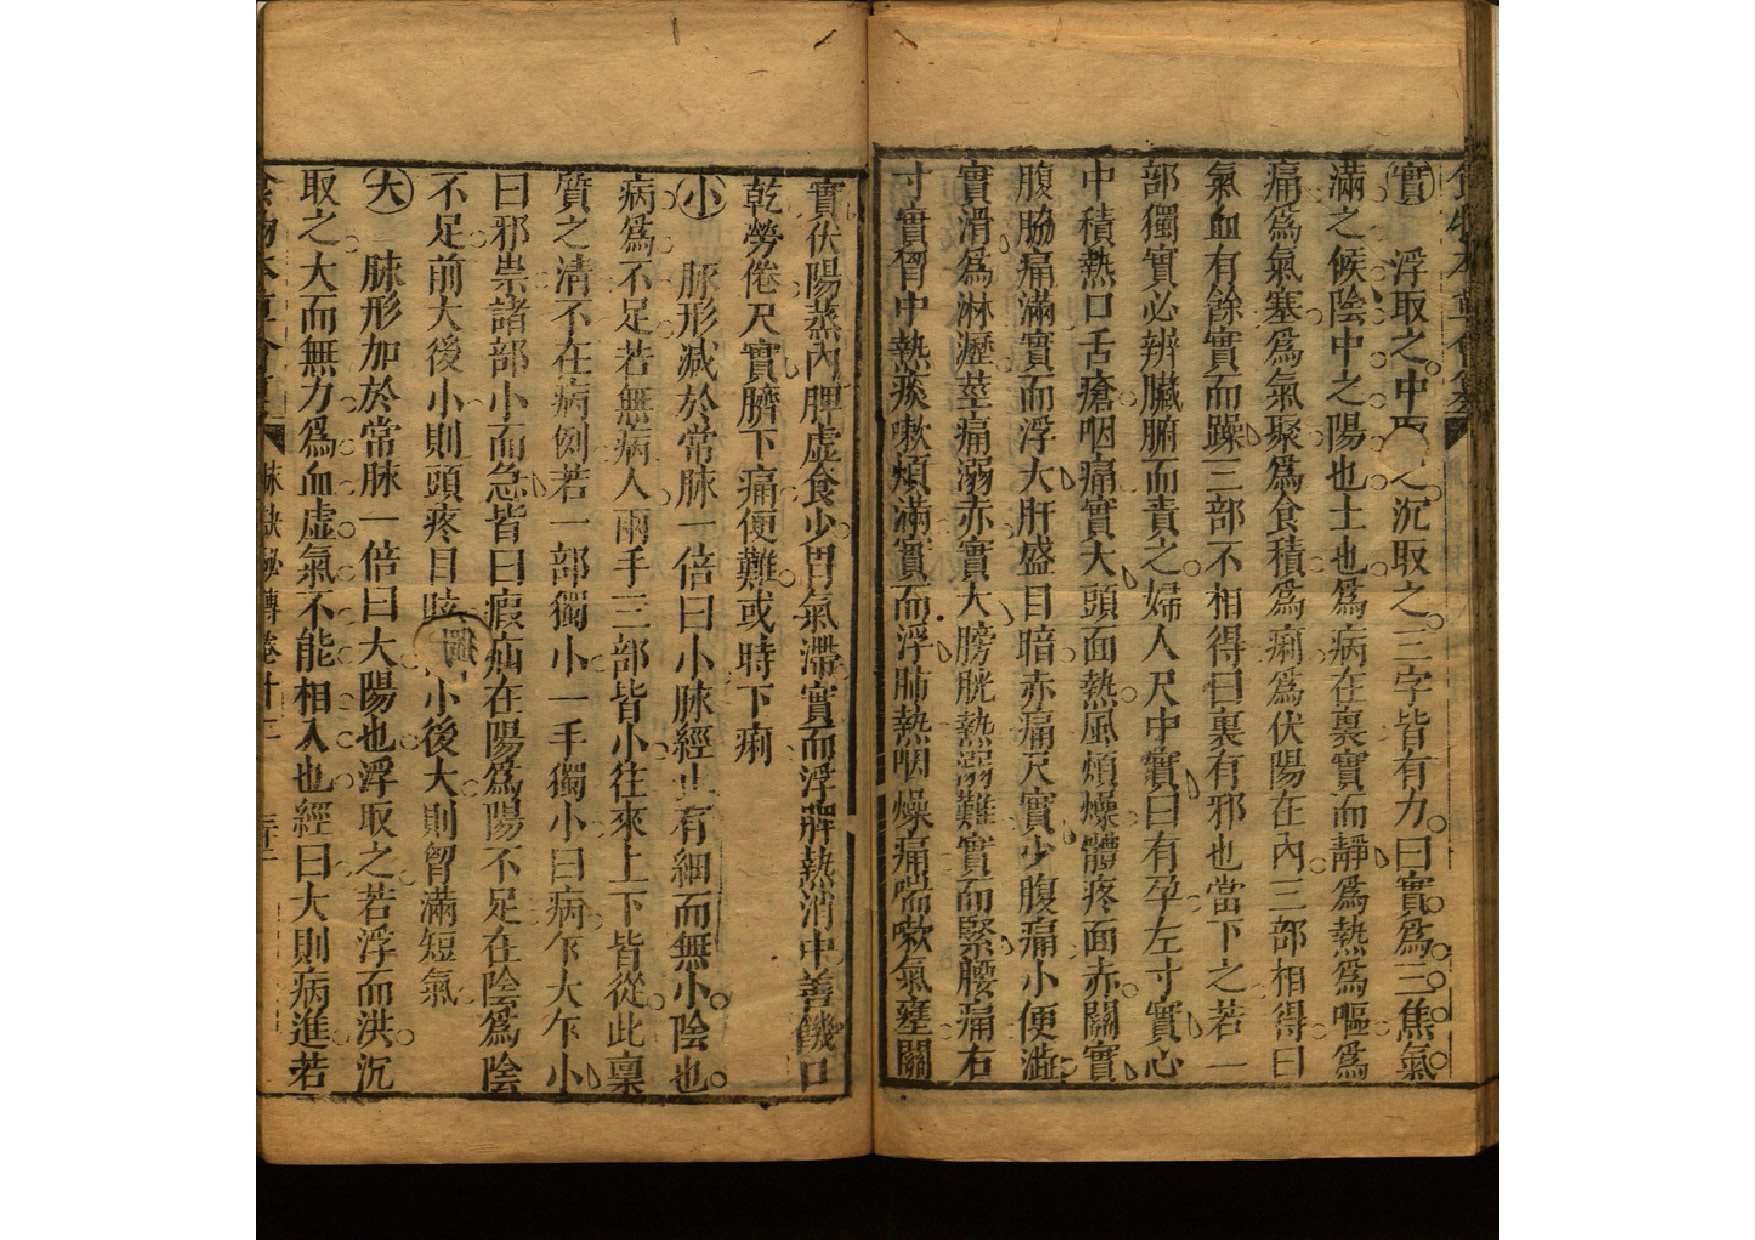 食物本草會纂
實　浮取之中取之沉取之三字皆有力曰實爲三焦氣
滿之候陰中之陽也土也爲病在裏實而靜爲熱爲嘔爲
痛爲氣塞爲氣聚爲食積爲痢爲伏陽在內三部相得曰
氣血有餘實而躁三部不相得曰裏有邪也當下之若一
部獨實必辨臟腑而責之婦人尺中實曰有孕左寸實心
中積熱口舌瘡咽痛實大頭面熱風煩燥體疼面赤關實
腹脇痛滿實而浮大肝盛目暗赤痛尺實少腹痛小便澁
實滑爲淋瀝莖痛溺赤實大膀胱熱溺難實而緊腰痛右
寸實胷中熱痰嗽煩滿實而浮肺熱咽燥痛喘嗽氣壅關
實伏陽蒸內脾虛食少胃氣滯實而浮脾熱消中善饑口
乾勞倦尺實臍下痛便難或時下痢
小　脈形减於常脉一倍曰小脉經止有細而無小陰也
病爲不足若無病人兩手三部皆小往來上下皆從此稟
質之清不在病例若一部獨小一手獨小曰病乍大乍小
曰邪祟諸部小而急皆曰瘕疝在陽爲陽不足在陰爲陰
不足前大後小則頭疼目眩小後大則胷滿短氣
大　脉形加於常脉一倍曰大陽也浮取之若浮而洪沉
取之大而無力爲血虛氣不能相入也經曰大則病進若
食物本草會纂　脉訣秘傳卷十二　三十一